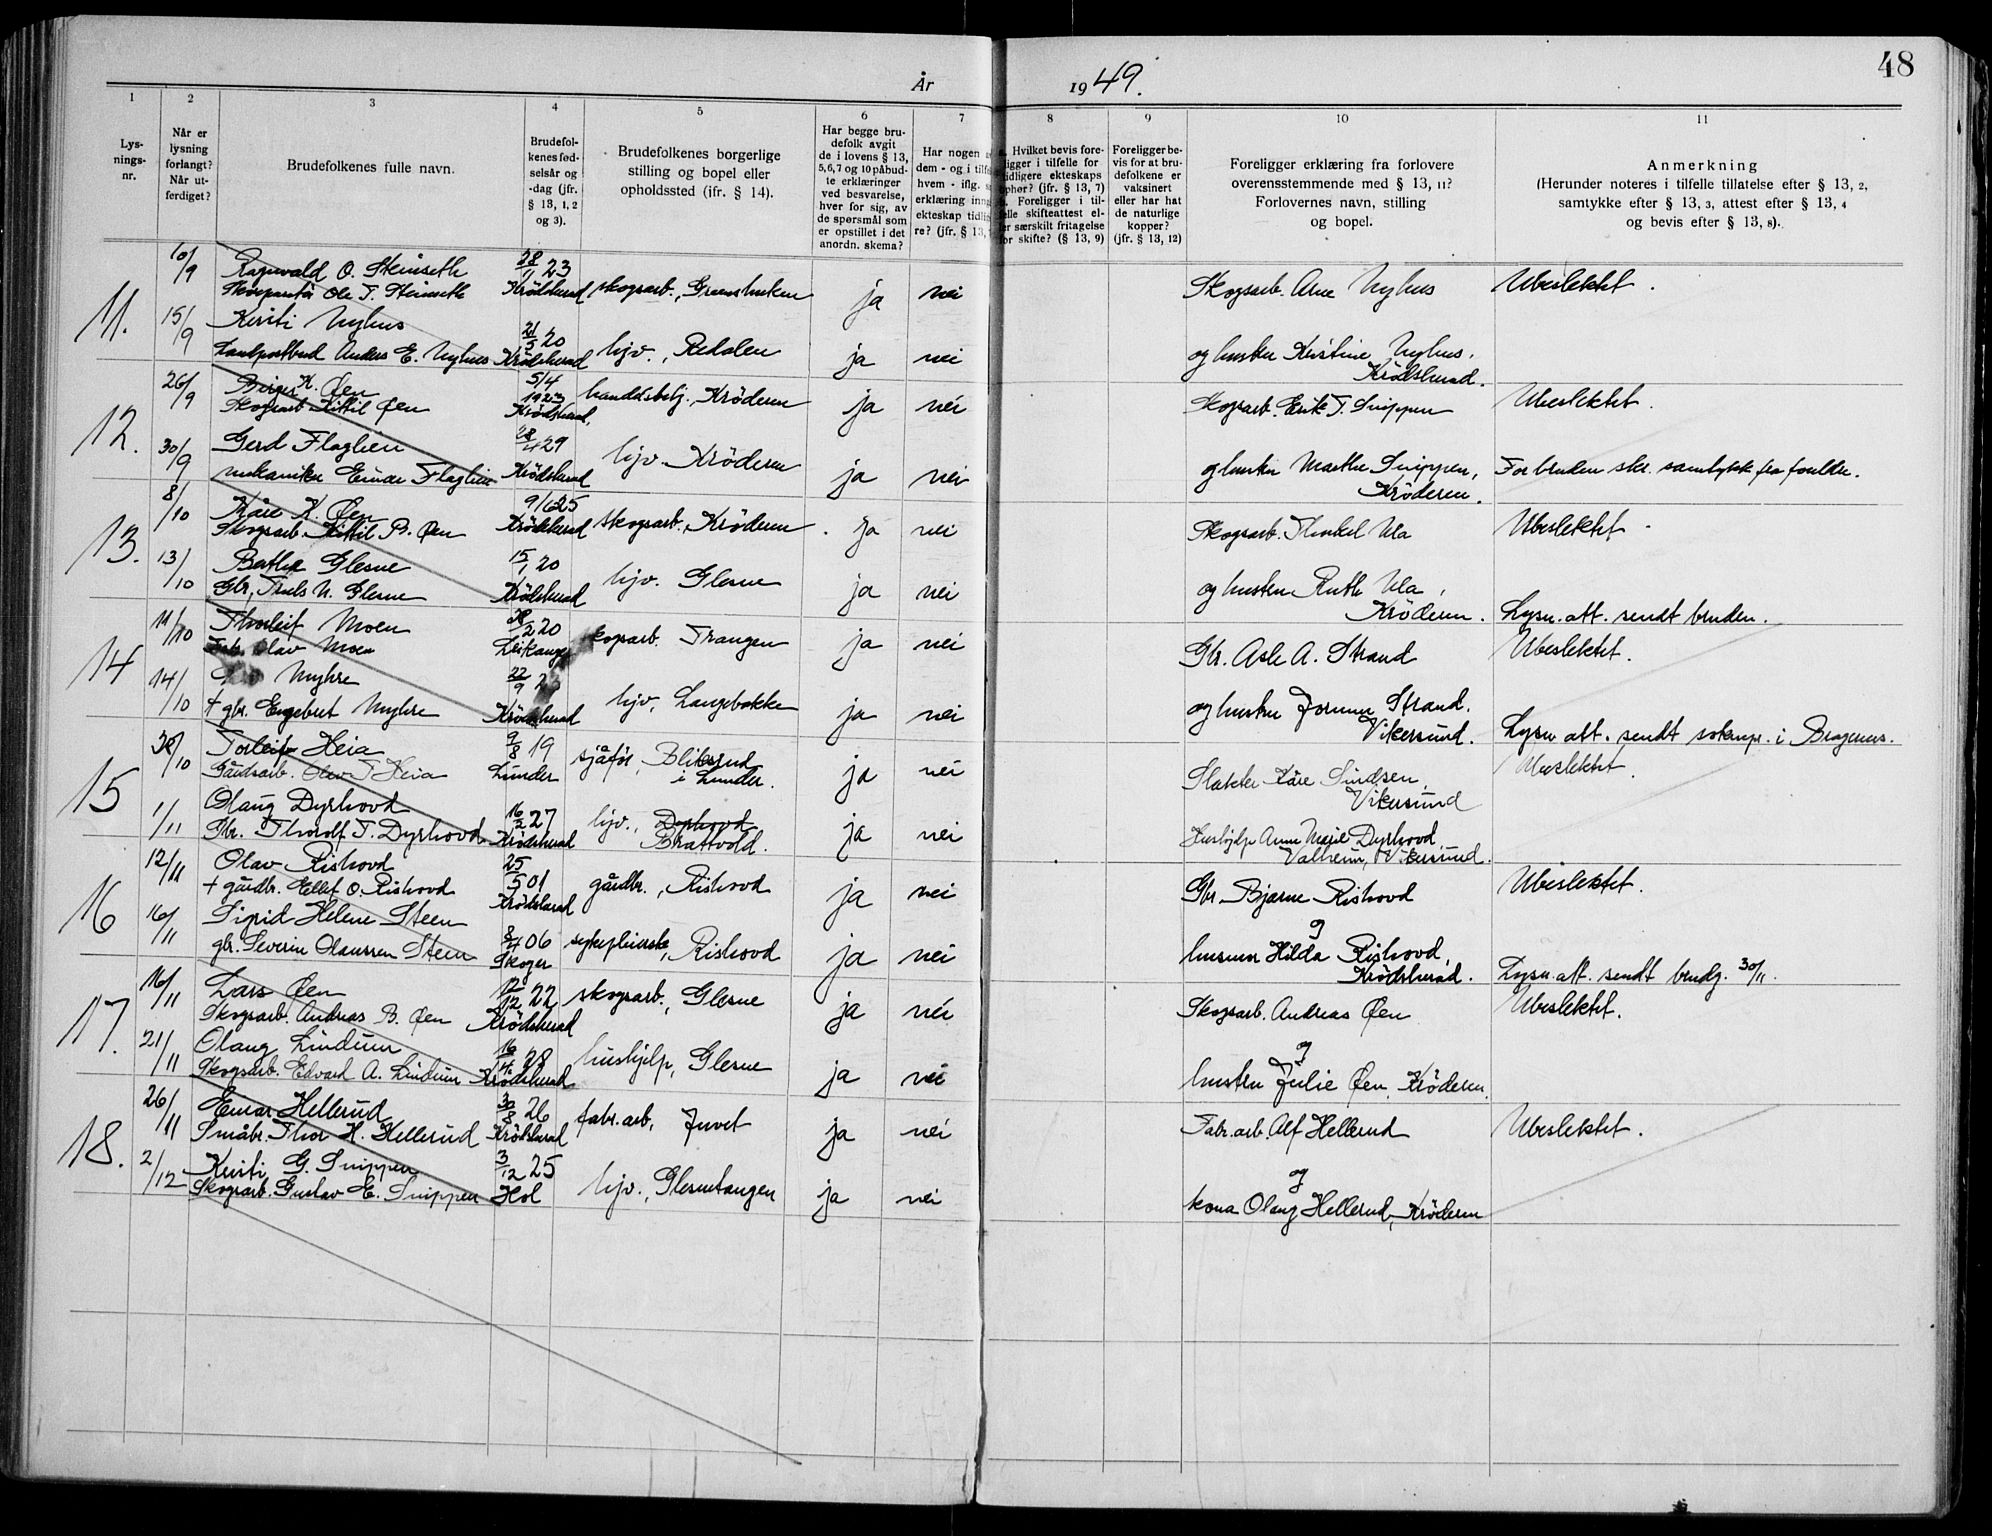 48
År 1949.
1 2 3 4 5 6 7 8 9 10 11
Lys-
nings-
nr.
Når er
lysning
forlangt?
Når ut-
ferdiget?
Brudefolkenes fulle navn.
Brudefol-
kenes fød-
selsår og
-dag (jfr.
§ 13, 1, 2
og 3).
Brudefolkenes borgerlige
stilling og bopel eller
opholdssted (ifr. § 14).
Har begge bru-
defolk avgit
de i lovens § 13,
5,6,7 og 10 påbud-
te erklæringer
ved besvarelse,
hver for sig, av
de spørsmål som
er opstillet i det
anordn. skema?
Har nogen
dem - og i tilf
hvem - iflg.
erklæring inn
ekteskap tidli
re? (jfr. § 13,
Hvilket bevis fore-
ligger i tilfelle for
tidligere ekteskaps
ophør? (jfr. § 13, 7)
Foreligger i til-
felle skifteattest el-
er særskilt fritagelse
for skifte? (§ 13, 9)
Foreligger be-
vis for at bru-
defolkene er
vaksinert
eller har hat
de naturlige
kopper?
(jfr. § 13, 12)
Foreligger erklæring fra forlovere
overensstemmende med § 13, 11?
Forlovernes navn, stilling
og bopel.
Anmerkning
(Herunder noteres i tilfelle tillatelse efter § 13, 2,
samtykke efter § 13, 3, attest efter § 13, 4
og bevis efter § 13, 8).
11. 10/9 Ragnvald O. Steinseth 28/11 23 skogsarb., ja nei Skogsarb. Arne Nyhus Ubeslektet.
Ole T. Steinseth Krödsherad
15/9 Kirsti Nyhus 21/5 20 hjv., Redalen ja nei og hustru Kristine Nyhus,
Landpostbud Anders E. Nyhus Krödsherad Krödsherad.
12. 26/9 Birger K. Øen 5/4 1923 handelsbetj., Kröderen ja nei Skogsarb. Erik T. Snippen Ubeslektet.
Skogsarb. Kittil Øen Krödsherad,
30/9 Gerd Flaglien 28/4 29 hjv. Kröderen ja nei og hustru Marthe Snippen, For bruden skr. samtykke fra foreldre.
mekaniker Einar Flaglien Krödsherad Kröderen.
13. 8/10 Kåre K. Øen 9/6 25 skogsarb., Kröderen. ja nei Skogsarb. Thorkel Ula Ubeslektet.
Skogsarb. Kittil B. Øen Krödsherad
13/10 Berthe Glesne 15/1 20 hjv. Glesne ja nei og hustru Ruth Ula,
Gbr. Truls N. Glesne Krödsherad Kröderen. Lysn. att. sendt bruden.
14 11/10 Thorleif Moen 2 20 skogsarb. Trangen ja nei Gbr. Asle A. Strand Ubeslektet.
Olav Moen Leikanger
14/10 Myhre 22/9 hjv. Langebakke ja nei og hustru Jorunn Strand.
+ gbr. Engebret Myhre Krödsherad Vikersund. Lysn. att. sendt soknepr. i Bragernes.
15 30/10 Torleif Heia 9/8 19 sjåför, Bliksrud ja nei Slakter Kåre Sundsen, Ubeslektet.
Gårdsarb. Olav T. Heia Lunder i Lunder. Vikersund
1/11 Olaug Dyrhovd 16/2 27 hjv., Dyrhovd ja nei Hushjelp Anne Marie Dyrhovd,
Gbr. Thorolf T. Dyrhovd Krödsherad Brattvold. Valheim, Vikersund.
16 12/11 Olav Rishovd 25/5 01 gårdbr., Rishovd ja nei Gbr. Bjarne Rishovd Ubeslektet.
+ gårdbr. Ellef O. Rishovd Krödsherad og
16/11 Sigrid Helene Steen 8/4 06 sykepleierske, Rishovd ja nei husmor Hilda Rishovd,
gbr. Severin Olaussen Steen Skoger Krödsherad. Lysn. att. sendt brudg. 30/11.
17. 16/11 Lars Øen 17/12 22 skogsarb., Glesne ja nei Skogsarb. Andreas Øen Ubeslektet.
Skogsarb. Andreas B. Øen Krödsherad og
21/11 Olaug Lindum 16/4 28 hushjelp, Glesne ja nei hustru Julie Øen, Kröderen.
Skogsarb. Edvard A. Lindum Krödsherad
18. 26/11 Einar Hellerud 30/8 26 fabr. arb., Juvet ja nei Fabr. arb. Alf Hellerud Ubeslektet.
Småbr. Thor H. Hellerud Krödsherad og
2/12 Kirsti G. Snippen 3/12 25 hjv., Glesnetangen ja nei kona Olaug Hellerud, Kröderen
Skogsarb. Gustav E. Snippen Hol